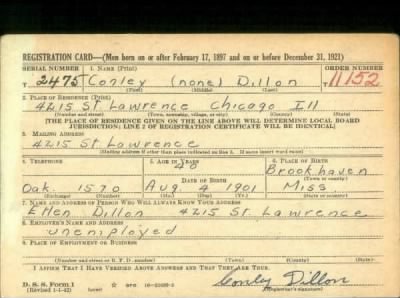 REGISTRATION CARD—(Men born on or after February 17, 1897 and on or before December 31, 1921)
SERIAL NUMBER 1. NAME (Print) ORDER NUMBER
T 2475 Conley (none) Dillon T 11152
(First) (Middle) (Last)
2. PLACE OF RESIDENCE (Print)
4215 St Lawrence Chicago Ill
(Number and street) (Town, township, village, or city) (County) (State)
[THE PLACE OF RESIDENCE GIVEN ON THE LINE ABOVE WILL DETERMINE LOCAL BOARD
JURISDICTION; LINE 2 OF REGISTRATION CERTIFICATE WILL BE IDENTICAL]
3. MAILING ADDRESS
4215 St Lawrence
[Mailing address if other than place indicated on line 2. If same insert word same]
4. TELEPHONE 5. AGE IN YEARS 6. PLACE OF BIRTH
40 Brookhaven
DATE OF BIRTH (Town or county)
Oak. 1570 Aug 4 1901 Miss
(Exchange) (Number) (Mo.) (Day) (Yr.) (State or country)
7. NAME AND ADDRESS OF PERSON WHO WILL ALWAYS KNOW YOUR ADDRESS
Ellen Dillon 4215 St. Lawrence
8. EMPLOYER'S NAME AND ADDRESS
unemployed
9. PLACE OF EMPLOYMENT OR BUSINESS
(Number and street or R. F. D. number) (Town) (County) (State)
I AFFIRM THAT I HAVE VERIFIED ABOVE ANSWERS AND THAT THEY ARE TRUE.
D. S. S. Form 1 GPO Conley Dillon
(Revised 1-1-42) (Registrant's signature)